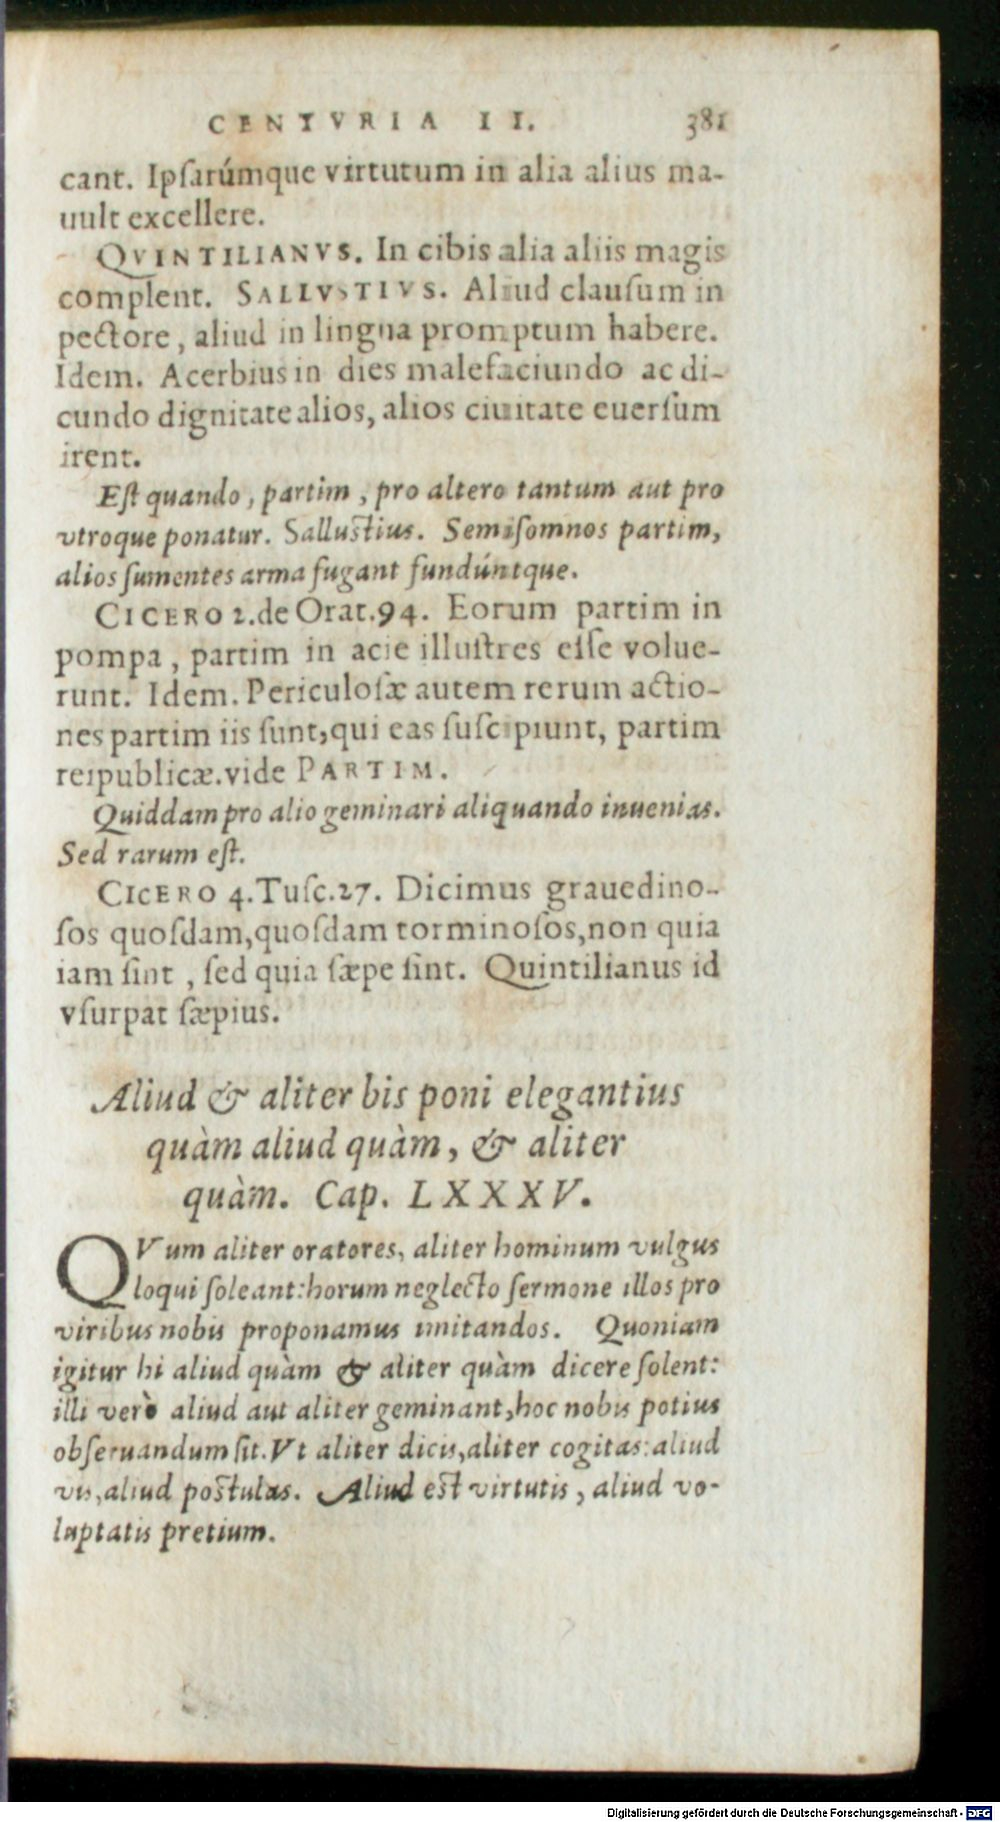 CENTVRIA II. 381
cant. Ipſarúmque virtutum in alia alius ma-
uult excellere.
QVINTILIANVS. In cibis alia aliis magis
complent. SALLVSTIVS. Aliud clauſum in
pectore, aliud in lingua promptum habere.
Idem. Acerbius in dies malefaciundo ac di-
cundo dignitate alios, alios ciuitate euerſum
irent.
Eſt quando, partim, pro altero tantum aut pro
vtroque ponatur. Salluſtius. Semiſomnos partim,
alios ſumentes arma fugant fundúntque.
CICERO 2.de Orat.94. Eorum partim in
pompa, partim in acie illuſtres eſſe volue-
runt. Idem. Periculoſæ autem rerum actio-
nes partim iis ſunt, qui eas ſuſcipiunt, partim
reipublicæ. vide PARTIM.
Quiddam pro alio geminari aliquando inuenias.
Sed rarum eſt.
CICERO 4.Tuſc.27. Dicimus grauedino-
ſos quoſdam, quoſdam torminoſos, non quia
iam ſint, ſed quia ſæpe ſint. Quintilianus id
vſurpat ſæpius.
Aliud & aliter bis poni elegantius
quàm aliud quàm, & aliter
quàm. Cap. LXXXV.
QVum aliter oratores, aliter hominum vulgus
loqui ſoleant: horum neglecto ſermone illos pro
viribus nobis proponamus imitandos. Quoniam
igitur hi aliud quàm & aliter quàm dicere ſolent:
illi verò aliud aut aliter geminant, hoc nobis potius
obſeruandum ſit. Vt aliter dicis, aliter cogitas: aliud
vis, aliud poſtulas. Aliud eſt virtutis, aliud vo-
luptatis pretium.
Digitalisierung gefördert durch die Deutsche Forschungsgemeinschaft - DFG